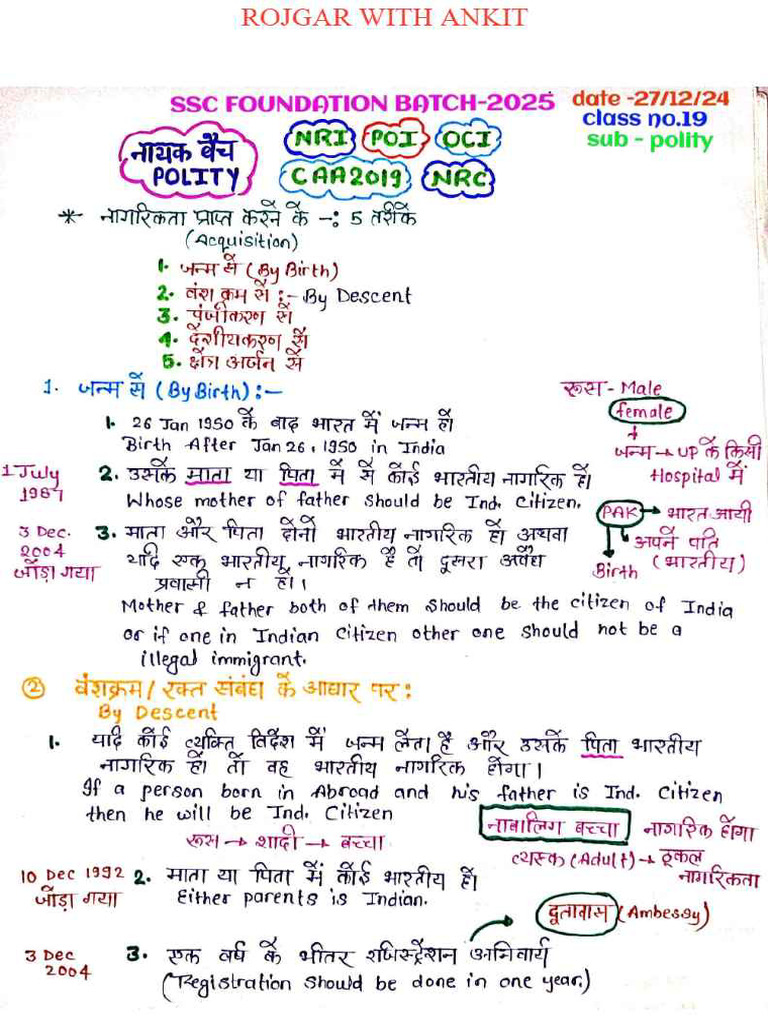 ROJGAR WITH ANKIT
SSC FOUNDATION BATCH-2025
date -27/12/24
class no.19
sub - polity
नायक बैच
POLITY
NRI POI OCI
CAA2019 NRC
* नागरिकता प्राप्त करने के -: 5 तरीके
(Acquisition)
1. जन्म से (By Birth)
2. वंश क्रम से :- By Descent
3. पंजीकरण से
4. देशीयकरण से
5. क्षेत्र अर्जन से
1. जन्म से (By Birth) :-
रूस - Male
female
जन्म → UP के किसी
Hospital में
1. 26 Jan 1950 के बाद भारत में जन्म हो
Birth After Jan 26, 1950 in India
1 July
1987
2. उसके माता या पिता में से कोई भारतीय नागरिक हो
Whose mother of father should be Ind. Citizen.
PAK → भारत आयी
अपने पति
(भारतीय)
Birth
3 Dec.
2004
जोड़ा गया
3. माता और पिता दोनों भारतीय नागरिक हो अथवा
यदि एक भारतीय नागरिक है तो दुसरा अवैध
प्रवासी न हो।
Mother & father both of them should be the citizen of India
or if one in Indian citizen other one should not be a
illegal immigrant.
2 वंशक्रम/ रक्त संबंध के आधार पर :
By Descent
1. यदि कोई व्यक्ति विदेश में जन्म लेता है और उसके पिता भारतीय
नागरिक हो तो वह भारतीय नागरिक होगा।
If a person born in Abroad and his father is Ind. Citizen
then he will be Ind. Citizen
रूस → शादी → बच्चा
नाबालिग बच्चा नागरिक होगा
व्यस्क (Adult) → ठूकल
नागरिकता
10 Dec 1992
जोड़ा गया
2. माता या पिता में कोई भारतीय हो
Either parents is Indian.
दूतावास (Ambessy)
3 Dec
2004
3. एक वर्ष के भीतर रजिस्ट्रेशन अनिवार्य
(Registration should be done in one year.)